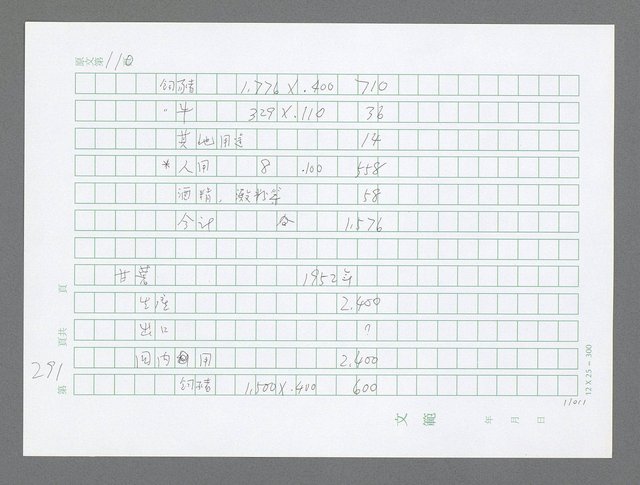 原文第110頁
飼豬 1,776×.400 710
〃牛 329×.110 36
其他用途 14
*人用 8 .100 558
酒精、澱粉等 58
合計 1,576
甘薯 1952年
生產 2,400
出口 ?
国内用 2,400
飼豬 1,500×.400 600
頁
頁共
第
291
12 X 25 = 300
11011
文範
年 月 日